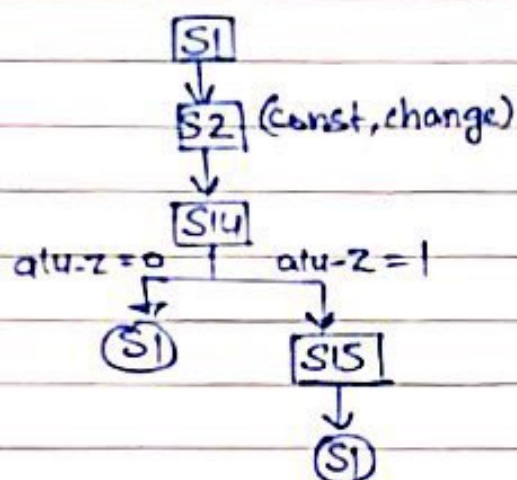 S1
S2 (const, change)
S14
alu-z = 0 alu-z = 1
S1 S15
S1